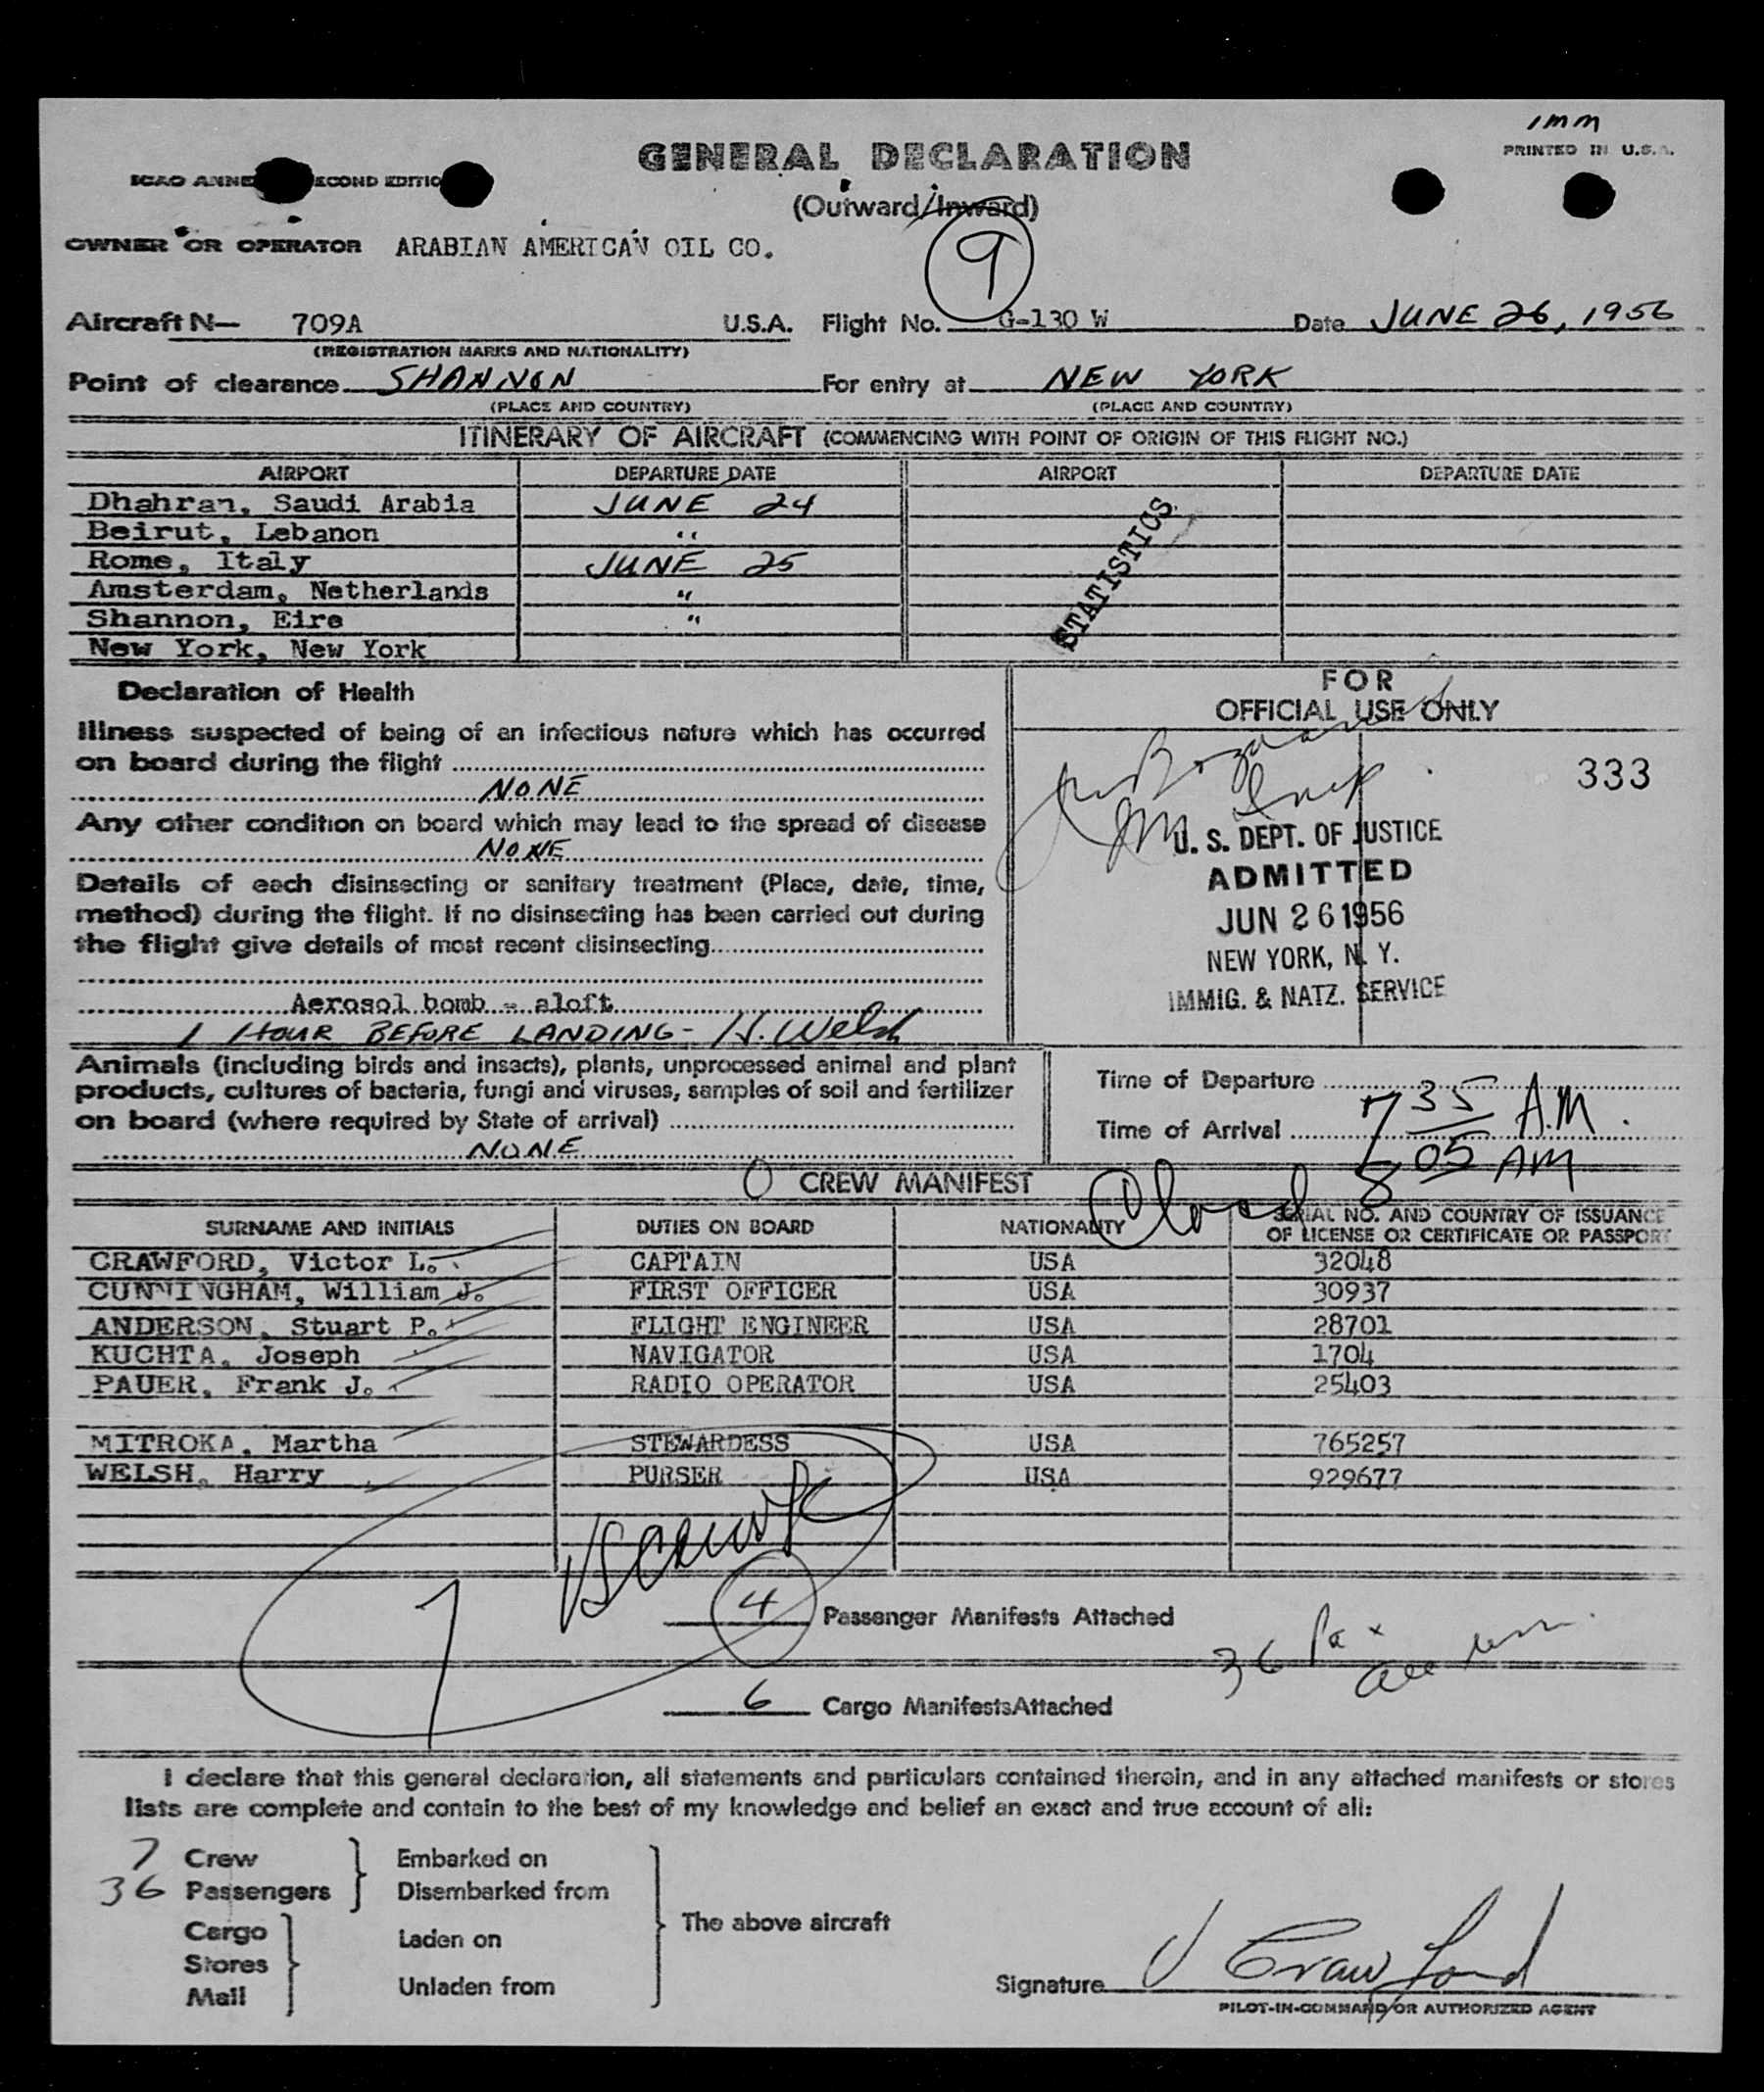 1mm
PRINTED IN U.S.A.
GENERAL DECLARATION
ICAO ANNE ECOND EDITIO
(Outward/Inward)
OWNER OR OPERATOR ARABIAN AMERICAN OIL CO.
9
Aircraft N— 709A U.S.A. Flight No. G-130 W Date JUNE 26, 1956
(REGISTRATION MARKS AND NATIONALITY)
Point of clearance SHANNON For entry at NEW YORK
(PLACE AND COUNTRY) (PLACE AND COUNTRY)
ITINERARY OF AIRCRAFT (COMMENCING WITH POINT OF ORIGIN OF THIS FLIGHT NO.)
AIRPORT DEPARTURE DATE AIRPORT DEPARTURE DATE
Dhahran, Saudi Arabia JUNE 24
Beirut, Lebanon "
Rome, Italy JUNE 25
Amsterdam, Netherlands "
Shannon, Eire "
New York, New York
STATISTICS
Declaration of Health
Illness suspected of being of an infectious nature which has occurred
on board during the flight
NONE
Any other condition on board which may lead to the spread of disease
NONE
Details of each disinsecting or sanitary treatment (Place, date, time,
method) during the flight. If no disinsecting has been carried out during
the flight give details of most recent disinsecting
Aerosol bomb - aloft
1 HOUR BEFORE LANDING - H. Welsh
FOR
OFFICIAL USE ONLY
333
U. S. DEPT. OF JUSTICE
ADMITTED
JUN 26 1956
NEW YORK, N. Y.
IMMIG. & NATZ. SERVICE
Animals (including birds and insects), plants, unprocessed animal and plant
products, cultures of bacteria, fungi and viruses, samples of soil and fertilizer
on board (where required by State of arrival)
NONE
Time of Departure
Time of Arrival 7 35 A.M.
8 05 AM
CREW MANIFEST
SURNAME AND INITIALS DUTIES ON BOARD NATIONALITY SERIAL NO. AND COUNTRY OF ISSUANCE
OF LICENSE OR CERTIFICATE OR PASSPORT
CRAWFORD, Victor L. CAPTAIN USA 32048
CUNNINGHAM, William J. FIRST OFFICER USA 30937
ANDERSON, Stuart P. FLIGHT ENGINEER USA 28701
KUCHTA, Joseph NAVIGATOR USA 1704
PAUER, Frank J. RADIO OPERATOR USA 25403
MITROKA, Martha STEWARDESS USA 765257
WELSH, Harry PURSER USA 929677
7
4 Passenger Manifests Attached
36 Pax
6 Cargo Manifests Attached
I declare that this general declaration, all statements and particulars contained therein, and in any attached manifests or stores
lists are complete and contain to the best of my knowledge and belief an exact and true account of all:
7 Crew Embarked on
36 Passengers Disembarked from
Cargo Laden on
Stores
Mail Unladen from
The above aircraft
Signature V Crawford
PILOT-IN-COMMAND/OR AUTHORIZED AGENT